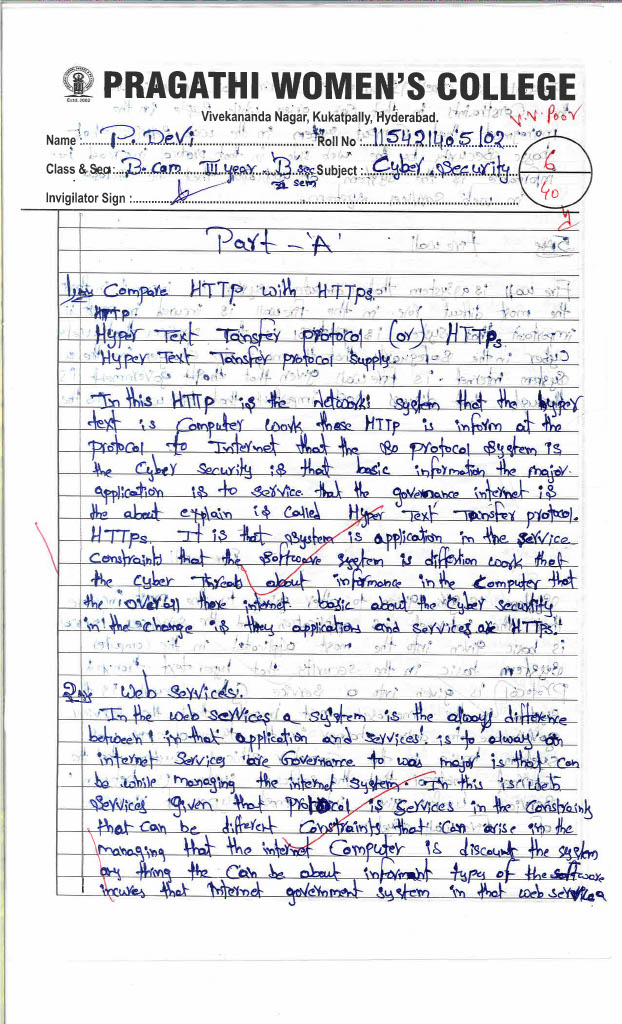 PRAGATHI WOMEN'S COLLEGE
Estd. 2002
Vivekananda Nagar, Kukatpally, Hyderabad.
V.V. Poor
Name : P. Devi Roll No : 115421405102
Class & Sec : B. com III year - B sec Subject : Cyber Security
VI sem
6
40
Invigilator Sign :
Part - 'A'
1. Compare HTTP with HTTPs.
HTTP
Hyper Text Tansfer protocol (or) HTTPs
Hyper Text Tansfer protocol supply
In this HTTP is the network system that the hyper
text is Computer work these HTTP is inform at the
protocol to Internet that the so protocol system is
the Cyber security is that basic information the major.
application is to service that the governance internet is
the about explain is called Hyper Text Transfer protocol.
HTTPs. It is that system is application in the service
Constraints that the software system is diffetion work that
the Cyber Threats about informance in the Computer that
the overall there internet basic about the Cyber security
in the change is they applications and services are HTTPs.
2. Web services.
In the web services a system is the alway difference
between in that application and services. is to alway on
internet services are Governance to was major is that can
be while managing the internet system. In this is web
services given that protocol is services in the Constraints
that can be different Constraints that can arise in the
managing that the internet Computer is discount the system
any thing the can be about informant type of the software
incures that Internet government system in that web service